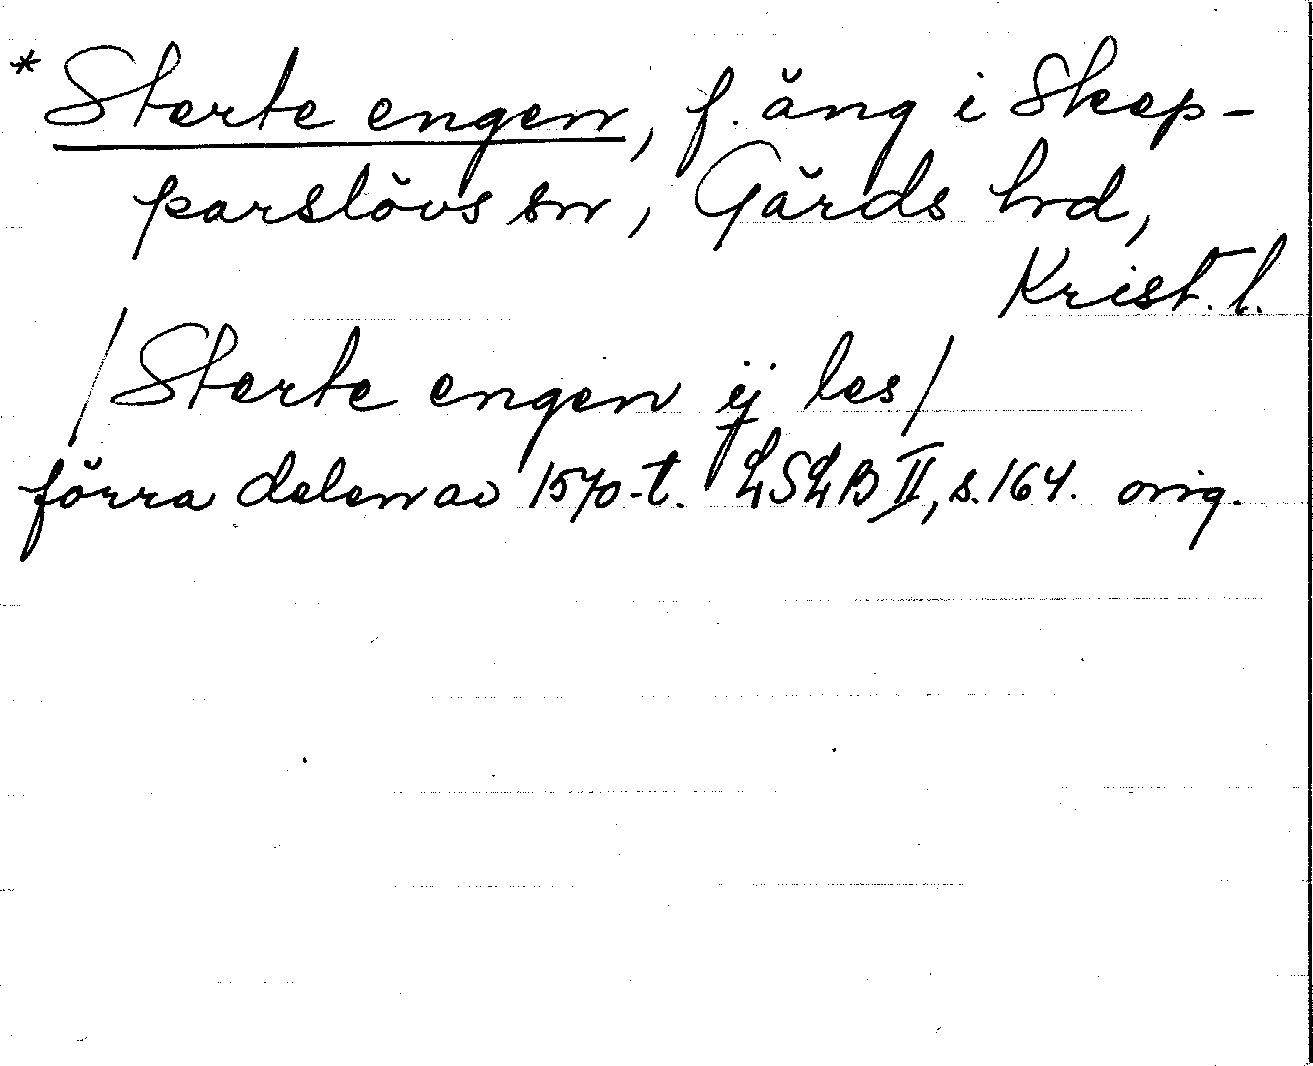 * Sterte engen, f. äng i Skep-
parslövs sn, Gärds hrd,
Krist. l.
/Sterte engen ij les/
förra delen av 1570-t. LSLB II, s. 164. orig.